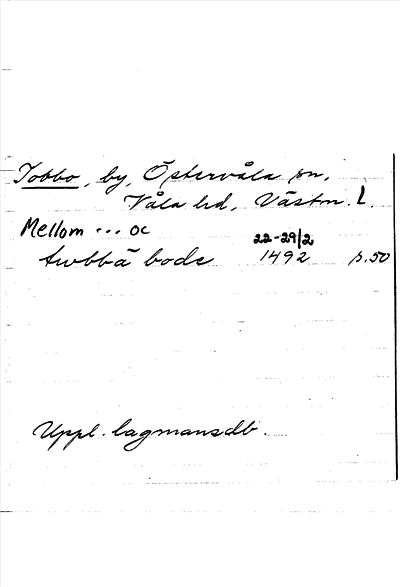 Tobbo, by, Östervåla sn,
Våla hd, Västm. L.
Mellom ... oc 22-29/2
twbbä bode 1492 s.50
Uppl. lagmansdb.